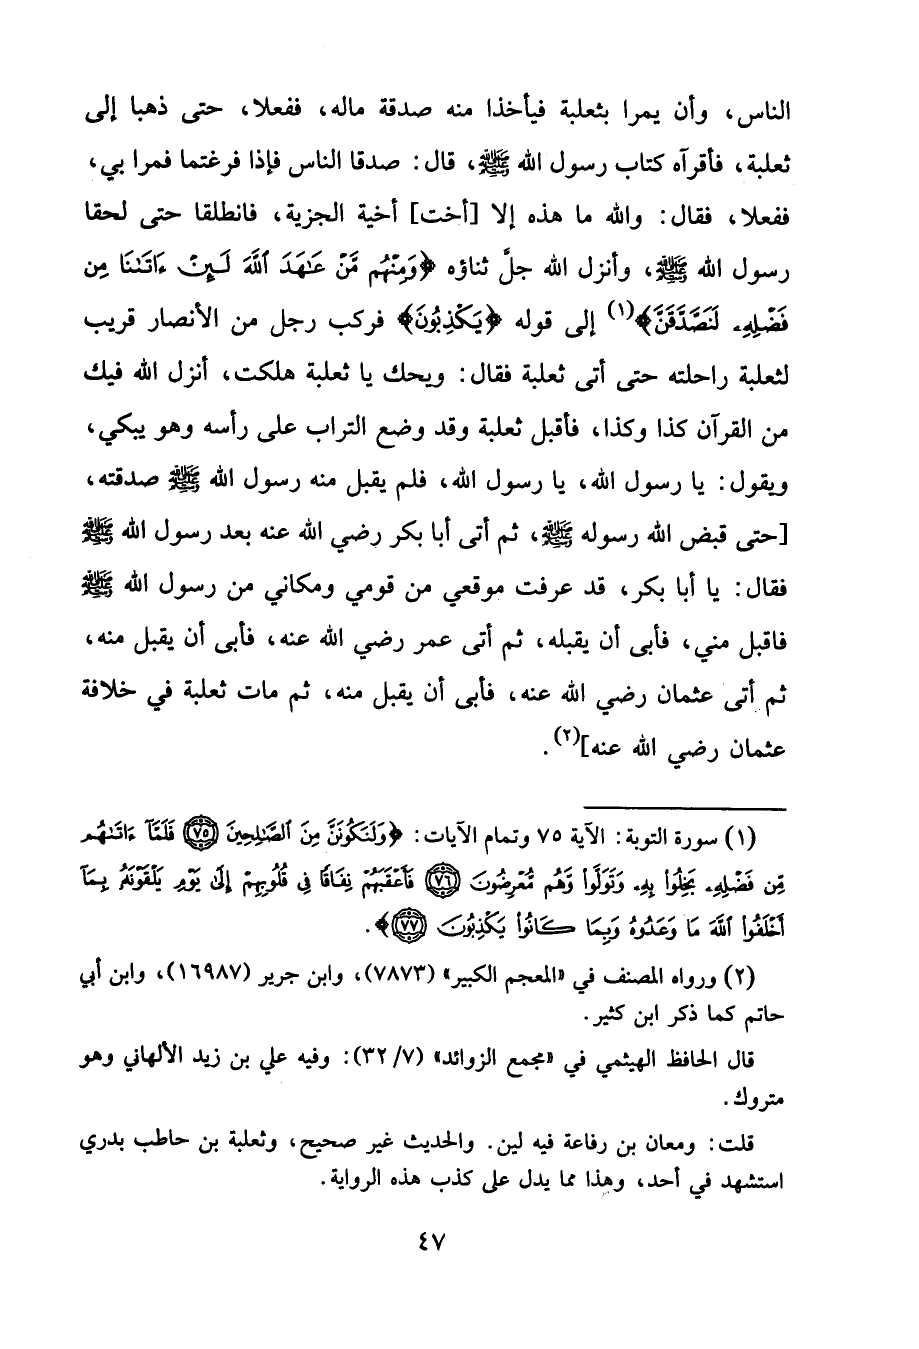 الناس، وأن يمرا بثعلبة فيأخذا منه صدقة ماله، ففعلا، حتى ذهبا إلى
ثعلبة، فأقرآه كتاب رسول الله ﷺ، قال: صدقا الناس فإذا فرغتما فمرا بي،
ففعلا، فقال: والله ما هذه إلا [أخت] أخية الجزية، فانطلقا حتى لحقا
رسول الله ﷺ، وأنزل الله جلَّ ثناؤه ﴿وَمِنْهُم مَّنْ عَٰهَدَ ٱللَّهَ لَئِنْ ءَاتَىٰنَا مِن
فَضْلِهِۦ لَنَصَّدَّقَنَّ﴾(١) إلى قوله ﴿يَكْذِبُونَ﴾ فركب رجل من الأنصار قريب
لثعلبة راحلته حتى أتى ثعلبة فقال: ويحك يا ثعلبة هلكت، أنزل الله فيك
من القرآن كذا وكذا، فأقبل ثعلبة وقد وضع التراب على رأسه وهو يبكي،
ويقول: يا رسول الله، يا رسول الله، فلم يقبل منه رسول الله ﷺ صدقته،
[حتى قبض الله رسوله ﷺ، ثم أتى أبا بكر رضي الله عنه بعد رسول الله ﷺ
فقال: يا أبا بكر، قد عرفت موقعي من قومي ومكاني من رسول الله ﷺ
فاقبل مني، فأبى أن يقبله، ثم أتى عمر رضي الله عنه، فأبى أن يقبل منه،
ثم أتى عثمان رضي الله عنه، فأبى أن يقبل منه، ثم مات ثعلبة في خلافة
عثمان رضي الله عنه](٢).
(١) سورة التوبة: الآية ٧٥ وتمام الآيات: ﴿وَلَنَكُونَنَّ مِنَ ٱلصَّٰلِحِينَ ۝٧٥ فَلَمَّآ ءَاتَىٰهُم
مِّن فَضْلِهِۦ بَخِلُوا۟ بِهِۦ وَتَوَلَّوا۟ وَّهُم مُّعْرِضُونَ ۝٧٦ فَأَعْقَبَهُمْ نِفَاقًا فِى قُلُوبِهِمْ إِلَىٰ يَوْمِ يَلْقَوْنَهُۥ بِمَآ
أَخْلَفُوا۟ ٱللَّهَ مَا وَعَدُوهُ وَبِمَا كَانُوا۟ يَكْذِبُونَ ۝٧٧﴾.
(٢) ورواه المصنف في «المعجم الكبير» (٧٨٧٣)، وابن جرير (١٦٩٨٧)، وابن أبي
حاتم كما ذكر ابن كثير.
قال الحافظ الهيثمي في «مجمع الزوائد» (٣٢/٧): وفيه علي بن زيد الألهاني وهو
متروك.
قلت: ومعان بن رفاعة فيه لين. والحديث غير صحيح، وثعلبة بن حاطب بدري
استشهد في أحد، وهذا مما يدل على كذب هذه الرواية.
٤٧